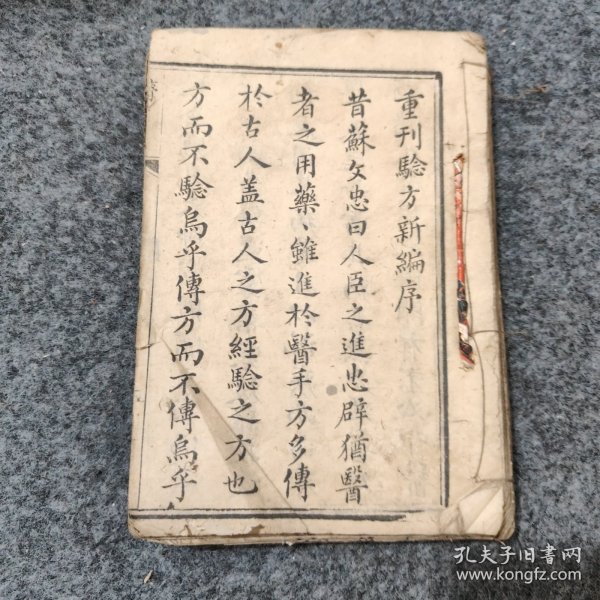 重刊驗方新編序
昔蘇文忠曰人臣之進忠辟猶醫
者之用藥、雖進於醫手方多傳
於古人盖古人之方經驗之方也
方而不驗烏乎傳方而不傳烏乎
孔夫子旧書网
www.kongfz.com